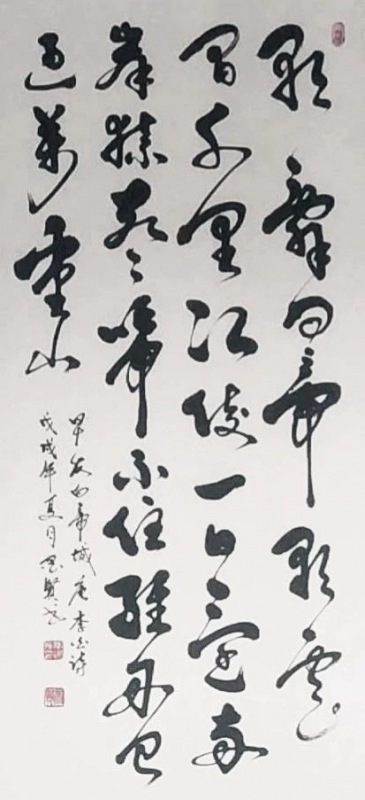 朝辭白帝彩雲
間千里江陵一日還兩
岸猿聲啼不住輕舟已
過萬重山
早發白帝城 唐 李白詩
戊戌年夏月